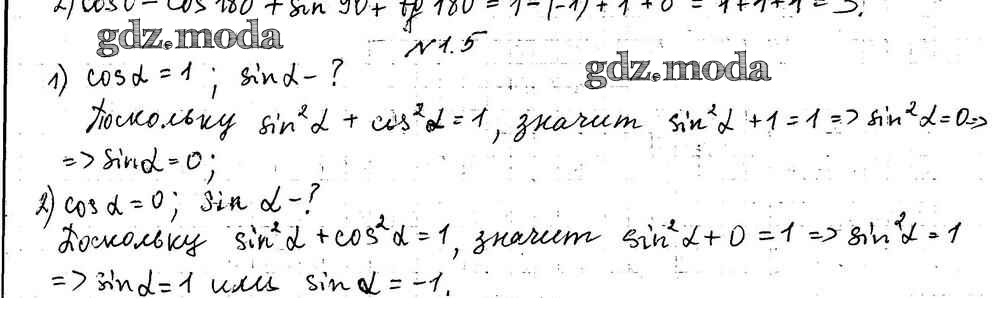 2) cos 0 - cos 180 + sin 90 + tg 180 = 1 - (-1) + 1 + 0 = 1+1+1 = 3.
gdz.moda
№1.5
gdz.moda
1) cosα = 1 ; sinα - ?
Поскольку sin²α + cos²α = 1, значит sin²α + 1 = 1 => sin²α = 0 =>
=> sinα = 0;
2) cosα = 0; sin α - ?
Поскольку sin²α + cos²α = 1, значит sin²α + 0 = 1 => sin²α = 1
=> sinα = 1 или sinα = -1.